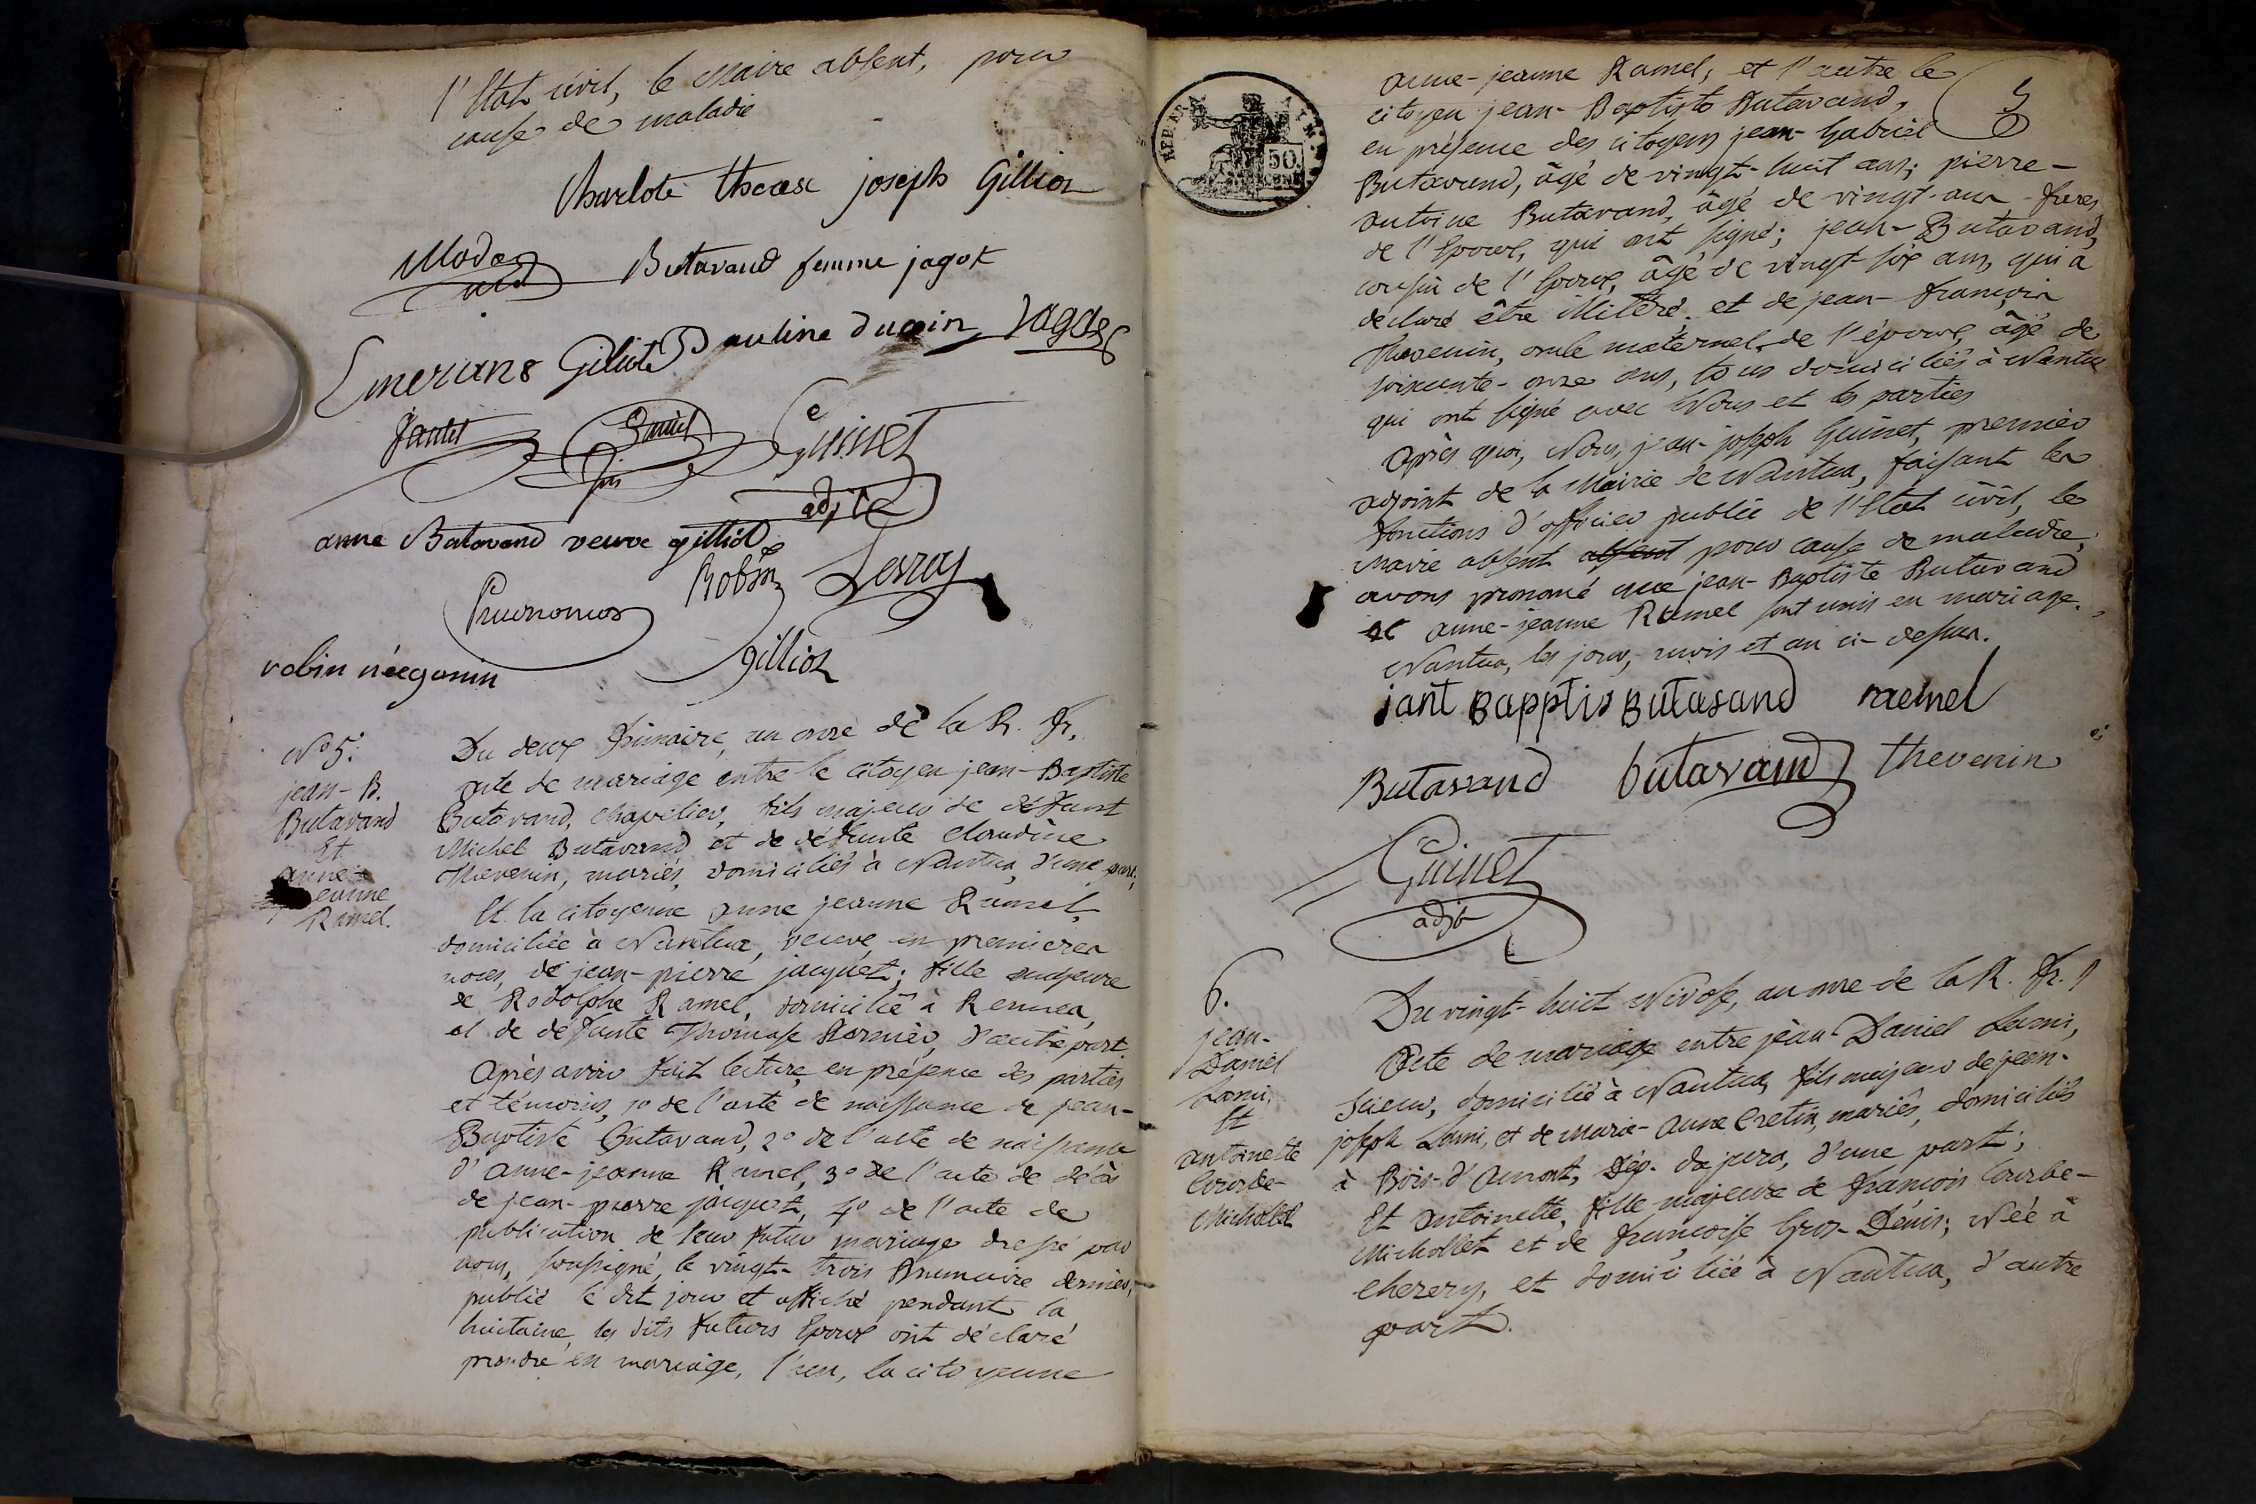 l'Etat civil, le Maire absent, pour
cause de maladie
Charlote therese joseph Gilliot
Butavand femme jagot
Emerians Giliot Pauline ducoin Jagot
Jantet
Guinet
adjt
anne Butavand veuve gilliot
Robin
Prudnomos
gilliot
robin née gonin
N° 5.
jean-B.
Butavand
Et
anne-
jeanne
Ramel.
Du deux frimaire, an onze de la R. fr.
acte de mariage entre le citoyen jean-Baptiste
Butavand, chapelier, fils majeur de défunt
Michel Butavand et de défunte Claudine
Thevenin, mariés, domiciliés à Nantua, d'une part;
Et la citoyenne anne jeanne Ramel,
domiciliée à Nantua, veuve en premieres
noces, de jean-pierre jacquet; fille majeure
de Rodolphe Ramel, domicilié à Rennes,
et de défunte Thomase Kornier, d'autre part
Après avoir fait lecture en présence des parties
et témoins, 1° de l'acte de naissance de jean-
Baptiste Butavand, 2° de l'acte de naissance
d'anne-jeanne Ramel, 3° de l'acte de décès
de jean-pierre jacquet, 4° de l'acte de
publication de leur futur mariage dressé par
nous, soussigné, le vingt-trois Brumaire dernier,
publié le dit jour et affiché pendant la
huitaine, les dits futurs Epoux ont déclaré
prendre en mariage, l'un, la citoyenne
REP. FRA.
50
CENT.
5
anne-jeanne Ramel, et l'autre le
citoyen jean-Baptiste Butavand,
en présence des citoyens jean-Gabriel
Butavand, âgé de vingt-huit ans; pierre-
antoine Butavand, âgé de vingt-ans - freres
de l'Epoux, qui ont signé; jean-Butavand,
cousin de l'Epoux, âgé de vingt-six ans, qui a
declaré être illitéré. et de jean-françois
Thevenin, oncle maternel de l'époux, âgé de
soixante-onze ans, tous domiciliés à Nantua
qui ont signé avec Nous et les parties
Après quoi, Nous, jean-joseph Guinet, premier
adjoint de la Mairie de Nantua, faisant les
fonctions d'officier public de l'Etat civil, le
Maire absent absent pour cause de maladie,
avons prononcé que jean-Baptiste Butavand
et anne-jeanne Ramel sont unis en mariage.
Nantua, les jour, mois et an ci-dessus.
jant Bapptis Butasand raemel
Butavand butavand thevenin
Guinet
adjt
6.
jean-
Daniel
Lami,
Et
antoinette
Courbe-
Michollet
Du vingt-huit Nivose, an onze de la R. fr.
Acte de mariage entre jean-Daniel Lami,
Scieur, domicilié à Nantua, fils majeur de jean-
joseph Lami, et de marie-Anne Cretin, mariés, domiciliés
à Bois-d'Amont, Dép. du jura, d'une part;
Et antoinette, fille majeure de françois Courbe-
Michollet et de françoise Gros-Dénis; Née à
chezery, et domiciliée à Nantua, d'autre
part.